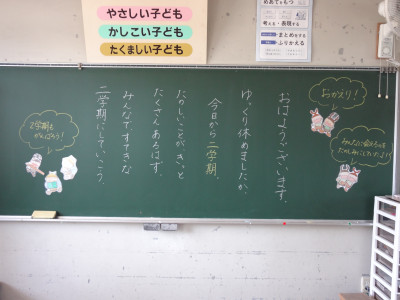 やさしい子ども
かしこい子ども
たくましい子ども
めあてをもつ
考える・表現する
まとめをする
ふりかえる
おかえり！
おはようございます。
ゆっくり休めましたか。
今日から二学期。
たのしいことがきっと
たくさんあるはず。
みんなですてきな
二学期にしていこう。
2学期も
がんばろう！